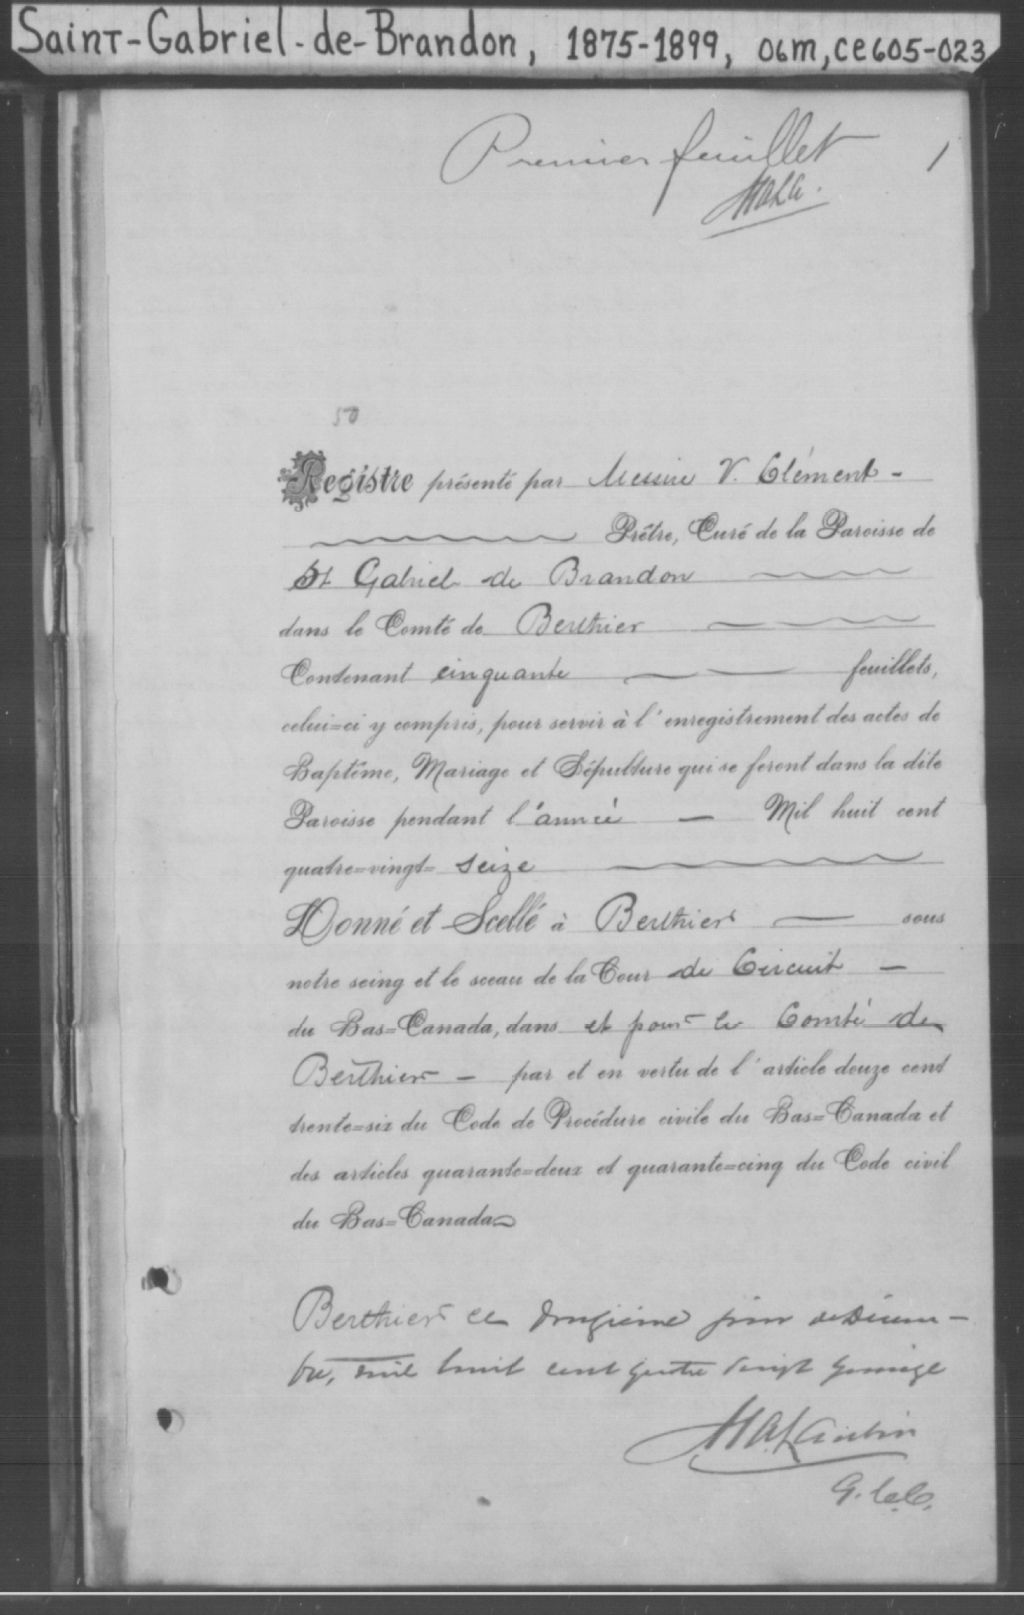 Saint-Gabriel-de-Brandon, 1875-1899, 06m, ce605-023
Premier feuillet 1
50
Registre présenté par Messire V. Clément -
Prêtre, Curé de la Paroisse de
St Gabriel de Brandon
dans le Comté de Berthier
Contenant cinquante feuillets,
celui=ci y compris, pour servir à l'enregistrement des actes de
Baptême, Mariage et Sépulture qui se feront dans la dite
Paroisse pendant l'année — Mil huit cent
quatre=vingt= seize
Donné et Scellé à Berthier — sous
notre seing et le sceau de la Cour de Circuit —
du Bas=Canada, dans et pour le Comté de
Berthier — par et en vertu de l'article douze cent
trente=six du Code de Procédure civile du Bas=Canada et
des articles quarante=deux et quarante=cinq du Code civil
du Bas=Canada
Berthier ce jour de Décem-
bre, mil huit cent quatre vingt quinze
G.C.C.